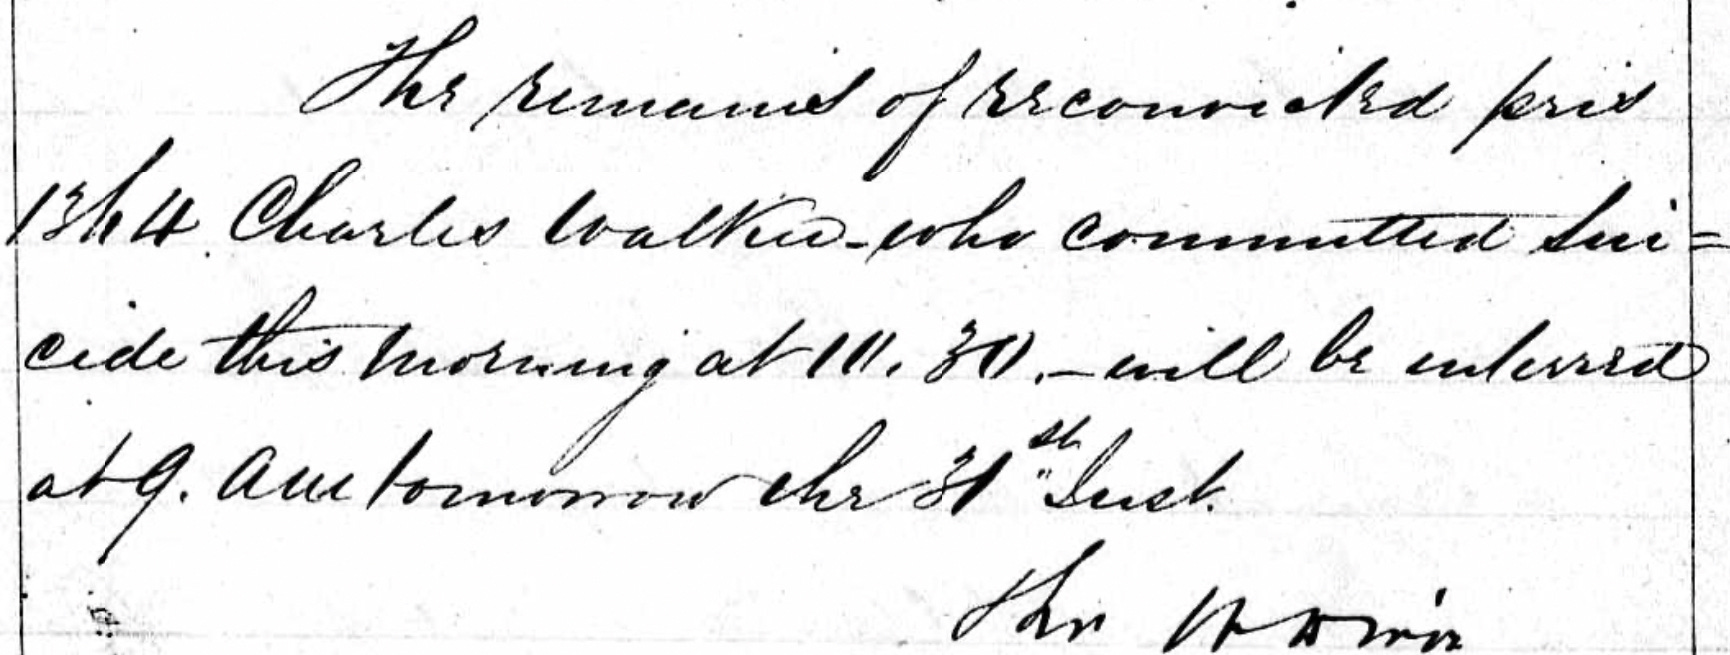 The remains of reconvicted pris
1364 Charles Walker - who committed Sui=
cide this morning at 10.30. - will be interred
at 9. am tomorrow the 31st Inst.